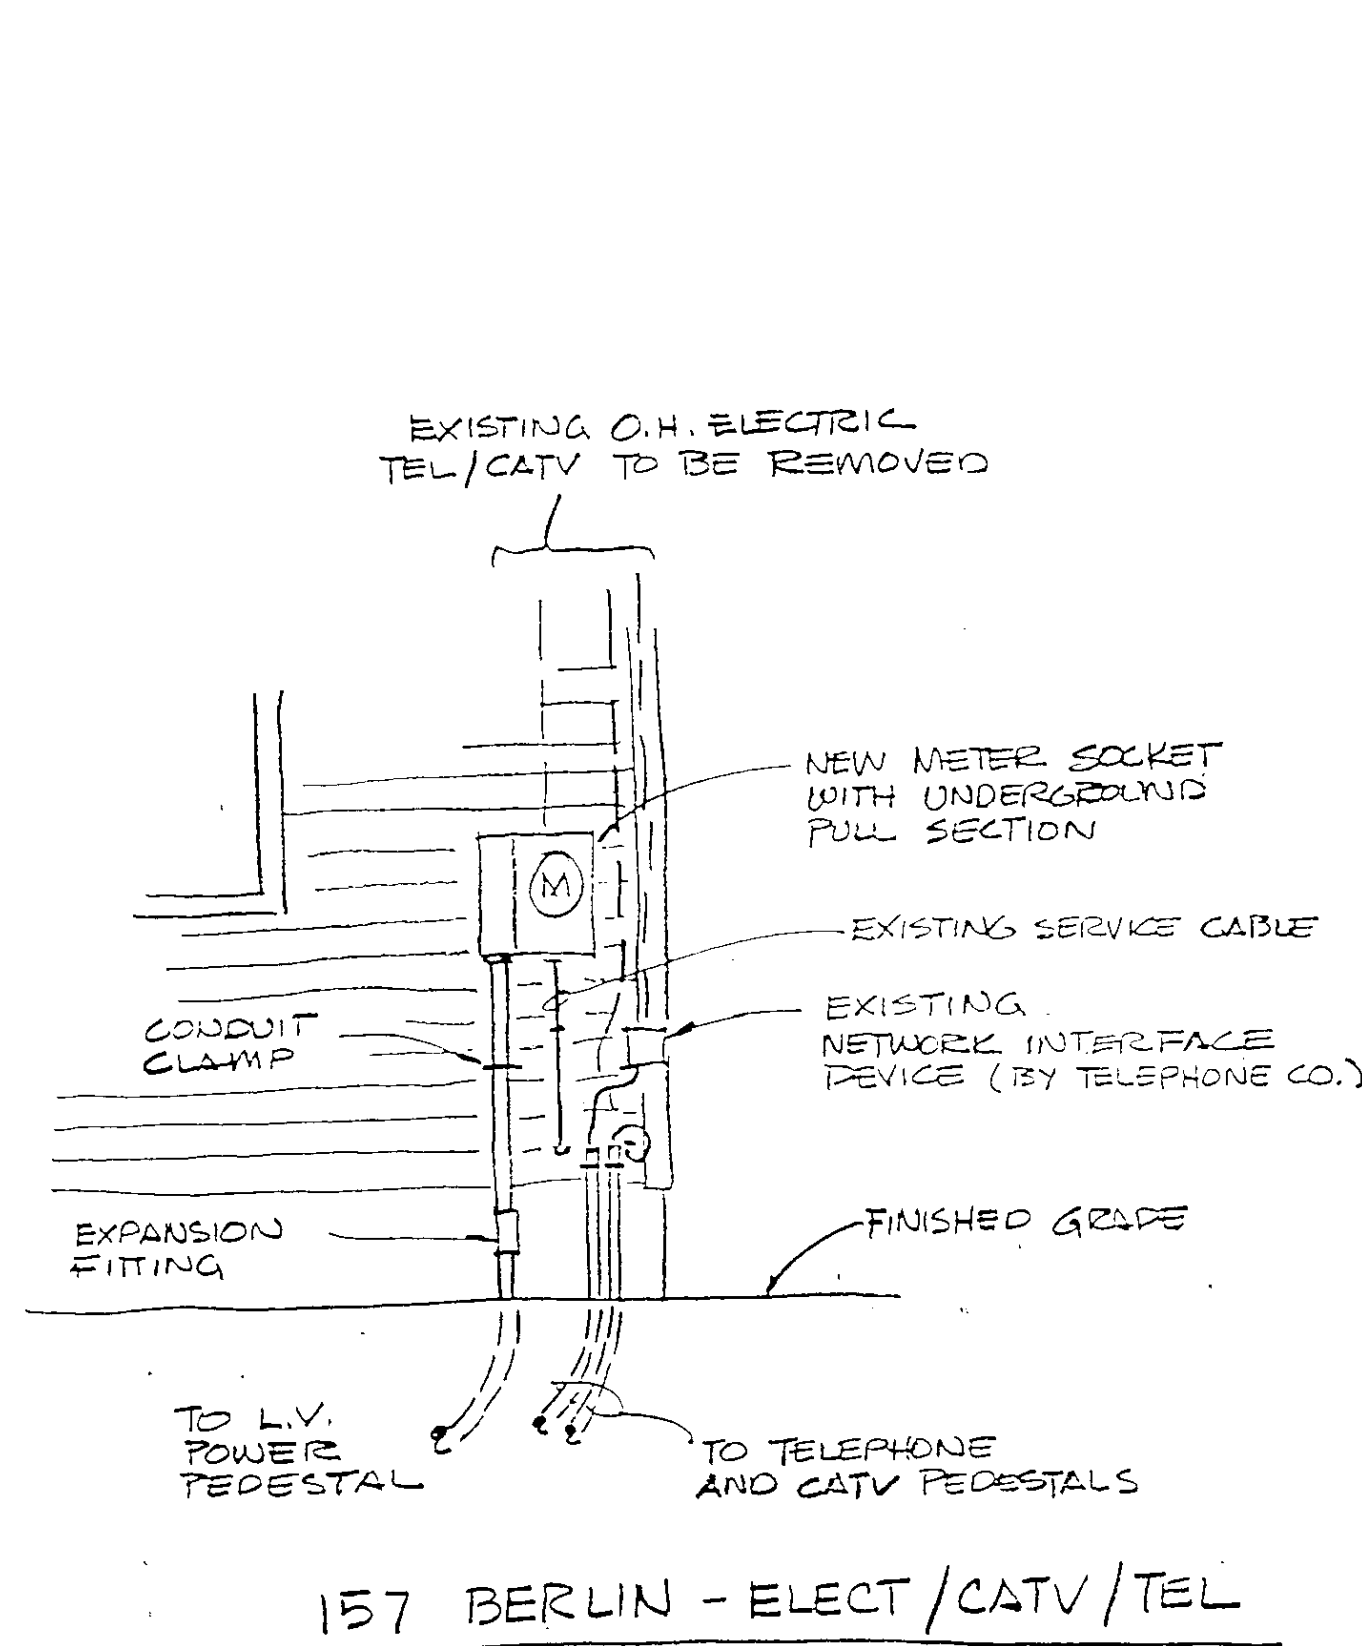 EXISTING O.H. ELECTRIC
TEL/CATV TO BE REMOVED
NEW METER SOCKET
WITH UNDERGROUND
PULL SECTION
M
EXISTING SERVICE CABLE
EXISTING
NETWORK INTERFACE
DEVICE (BY TELEPHONE CO.)
CONDUIT
CLAMP
EXPANSION
FITTING
FINISHED GRADE
TO L.V.
POWER
PEDESTAL
TO TELEPHONE
AND CATV PEDESTALS
157 BERLIN - ELECT/CATV/TEL